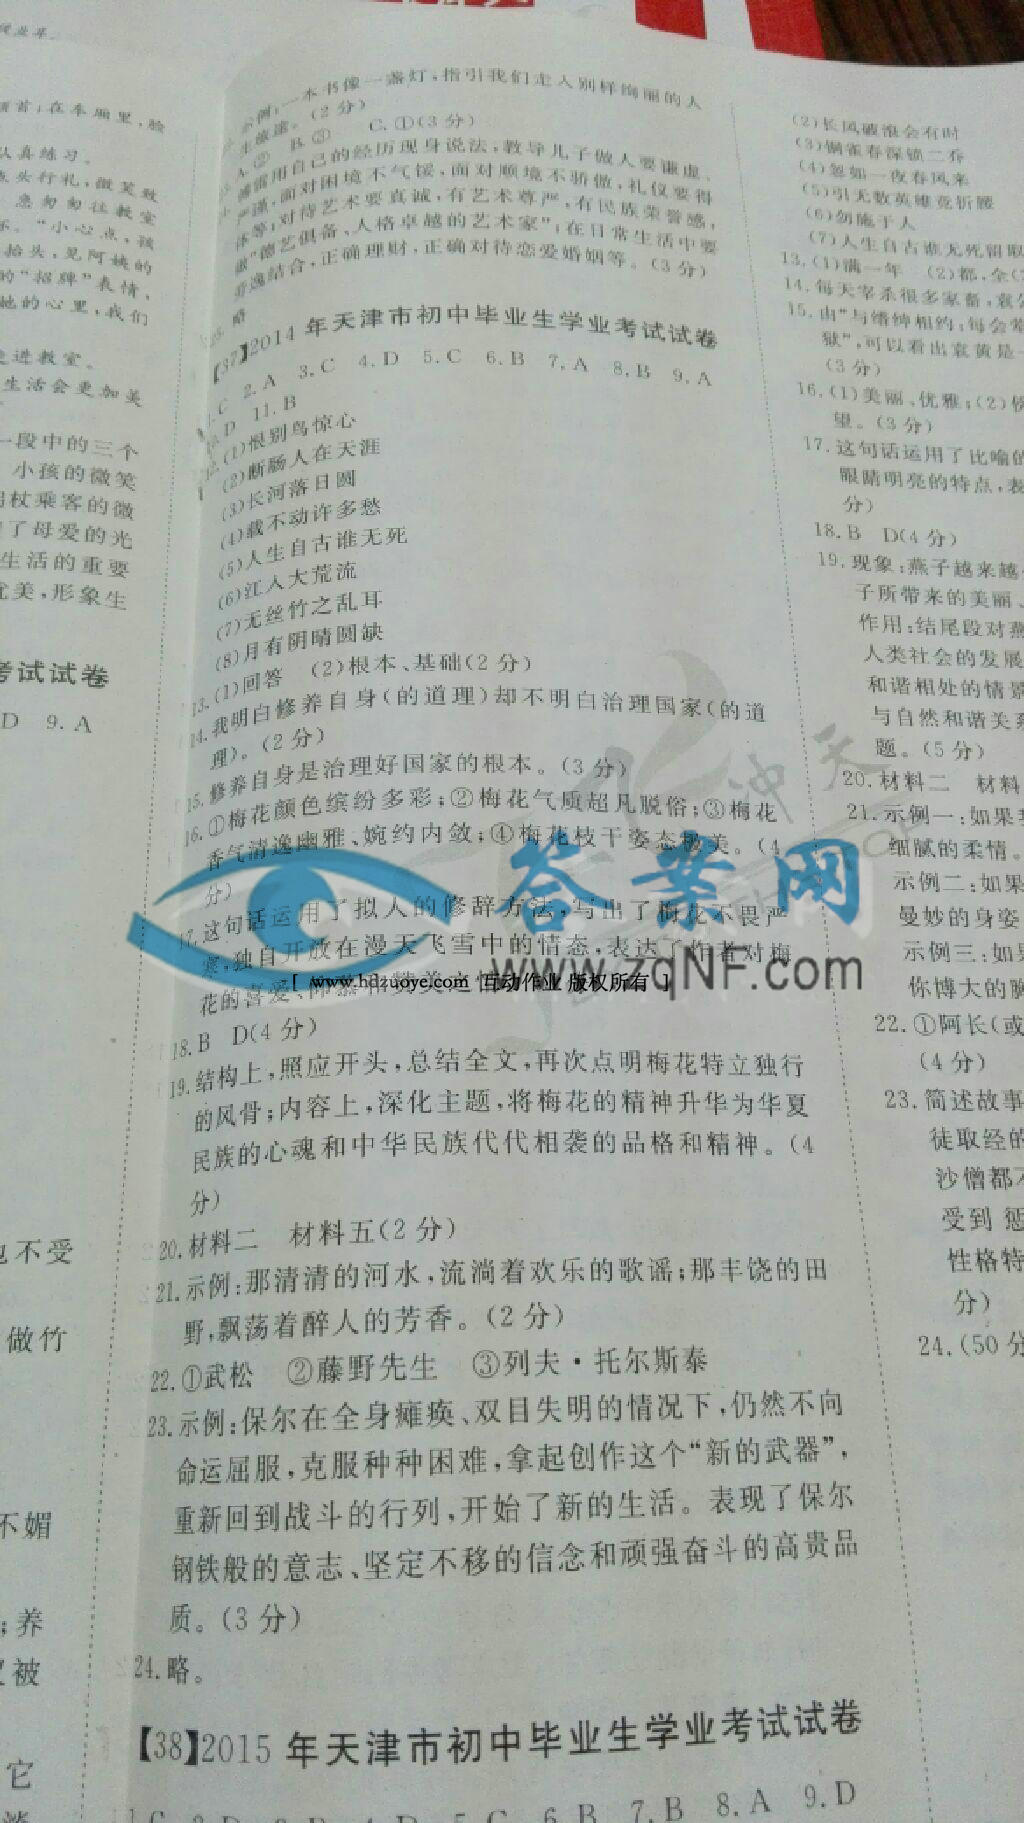 顿首;在车厢里,脸
认真练习。
点头行礼,微笑致
忽匆匆往教室
乐。“小心点,孩
抬头,见阿姨的
的“招牌”表情,
她的心里,我们
走进教室。
生活会更加美
一段中的三个
小孩的微笑
拐杖乘客的微
了母爱的光
生活的重要
优美,形象生
考试试卷
D 9.A
也不受
做竹
不媚
;养
被
它
示例:一本书像一盏灯,指引我们走入别样绚丽的人
生旅途。(2分)
A.② B.③ C.①(3分)
傅雷用自己的经历现身说法,教导儿子做人要谦虚、
严谨,面对困境不气馁,面对顺境不骄傲,礼仪要得
体等;对待艺术要真诚,有艺术尊严,有民族荣誉感,
做“德艺俱备、人格卓越的艺术家”;在日常生活中要
劳逸结合,正确理财,正确对待恋爱婚姻等。(3分)
略
【37】2014年天津市初中毕业生学业考试试卷
1.C 2.A 3.C 4.D 5.C 6.B 7.A 8.B 9.A
10.D 11.B
12.(1)恨别鸟惊心
(2)断肠人在天涯
(3)长河落日圆
(4)载不动许多愁
(5)人生自古谁无死
(6)江入大荒流
(7)无丝竹之乱耳
(8)月有阴晴圆缺
13.(1)回答 (2)根本、基础(2分)
14.我明白修养自身(的道理)却不明白治理国家(的道
理)。(2分)
15.修养自身是治理好国家的根本。(3分)
16.①梅花颜色缤纷多彩;②梅花气质超凡脱俗;③梅花
香气清逸幽雅、婉约内敛;④梅花枝干姿态极美。(4
分)
17.这句话运用了拟人的修辞方法,写出了梅花不畏严
寒,独自开放在漫天飞雪中的情态,表达了作者对梅
花的喜爱、仰慕和赞美之情
18.B D(4分)
19.结构上,照应开头,总结全文,再次点明梅花特立独行
的风骨;内容上,深化主题,将梅花的精神升华为华夏
民族的心魂和中华民族代代相袭的品格和精神。(4
分)
20.材料二 材料五(2分)
21.示例:那清清的河水,流淌着欢乐的歌谣;那丰饶的田
野,飘荡着醉人的芳香。(2分)
22.①武松 ②藤野先生 ③列夫·托尔斯泰
23.示例:保尔在全身瘫痪、双目失明的情况下,仍然不向
命运屈服,克服种种困难,拿起创作这个“新的武器”,
重新回到战斗的行列,开始了新的生活。表现了保尔
钢铁般的意志、坚定不移的信念和顽强奋斗的高贵品
质。(3分)
24.略。
【38】2015年天津市初中毕业生学业考试试卷
1.C 2.D 3.B 4.D 5.C 6.B 7.B 8.A 9.D
(2)长风破浪会有时
(3)铜雀春深锁二乔
(4)忽如一夜春风来
(5)引无数英雄竞折腰
(6)勿施于人
(7)人生自古谁无死留取
13.(1)满一年 (2)都,全(
14.每天宰杀很多家畜,袁公
15.由“与缙绅相约;每会常
狱”,可以看出袁黄是一
(3分)
16.(1)美丽、优雅;(2)
望。(3分)
17.这句话运用了比喻的
眼睛明亮的特点,表
分)
18.B D(4分)
19.现象:燕子越来越
子所带来的美丽、
作用:结尾段对燕
人类社会的发展
和谐相处的情景
与自然和谐关系
题。(5分)
20.材料二 材料
21.示例一:如果
细腻的柔情。
示例二:如果
曼妙的身姿
示例三:如果
你博大的胸
22.①阿长(或
(4分)
23.简述故事
徒取经的
沙僧都不
受到惩
性格特
分)
24.(50分
冲天
答案网
www.zqNF.com
[ www.hdzuoye.com 互动作业 版权所有 ]